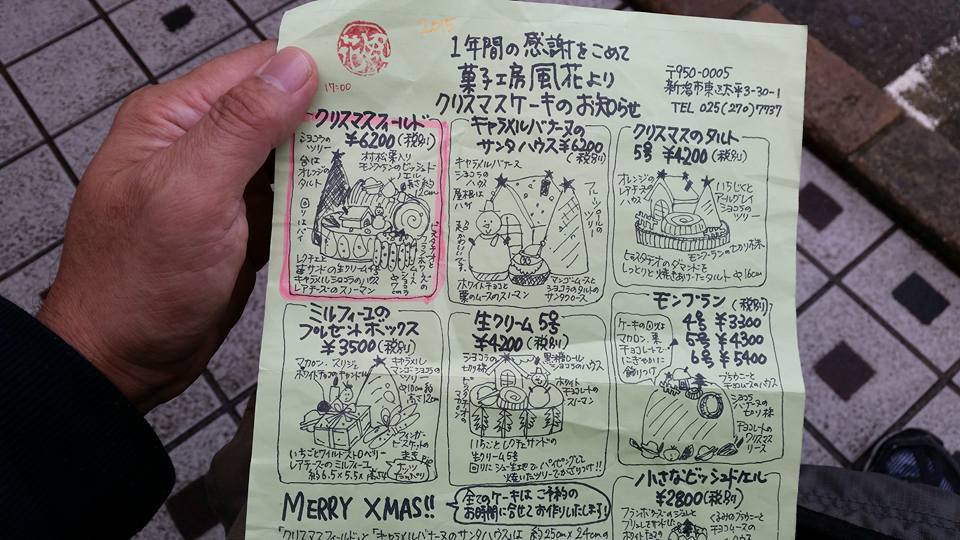 2015
17:00
1年間の感謝をこめて
菓子工房風花より
クリスマスケーキのお知らせ
〒950-0005
新潟市東区太平3-30-1
TEL 025(270)7737
クリスマスフィールド
¥6200(税別)
ショコラの
ツリー
台は
オレンジの
タルト
村松栗入り
モンブランのビッシュド
ノエル
高さ約
12cm
回りはパイ
苺サンドの生クリーム
キャラメルショコラのハウス
レアチーズのスノーマン
キャラメルバナーヌの
サンタハウス ¥6200
(税別)
キャラメルバナーヌ
ショコラの
ハウス
屋根は
ツリー
ホワイトチョコと
栗のムースのスノーマン
マンゴームースと
ショコラのタルトの
サンタ
クリスマスのタルト
5号 ¥4200(税別)
オレンジの
レアチーズの
ハウス
いちじくと
アールグレイ
ショコラの
ツリー
モンブランの切り株
ピスタチオのダマンドを
しっとりと焼きあげたタルト 約16cm
ミルフィーユの
プレゼントボックス
¥3500(税別)
マカロン、スリジェ
ホワイトチョコのキャンドル
キャラメル
マンゴーショコラの
ツリー
約10cm
高さ12cm
フィンガー
ビスケットの
まきgie
ナッツ
いちごとワイルドストロベリー
レアチーズのミルフィーユ
生クリーム 5号
¥4200(税別)
ショコラの
切り株
黒糖ロール
ショコラのハウス
ホワイト
チョコレートの
スノーマン
いちごとレクチェサンドの
生クリーム 5号
回りにシュー生地でパイピングして
焼いたツリーでかざります!!
モンブラン (税別)
4号 ¥3300
5号 ¥4300
6号 ¥5400
ケーキの回りは
マカロン、栗
チョコレートで
にぎやかに
飾りつけ
ブラウニーと
チョコムースのハウス
ショコラ
バナーヌの
切り株
チョコレートの
クリスマス
リース
MERRY XMAS!!
全てのケーキはご予約の
お時間に合せてお作りいたします!
小さなビッシュドノエル
¥2800(税別)
くるみのブラウニーと
チョコムースの
「クリスマスフィールド」と「キャラメルバナーヌのサンタハウス」は 約25cm×24cmの